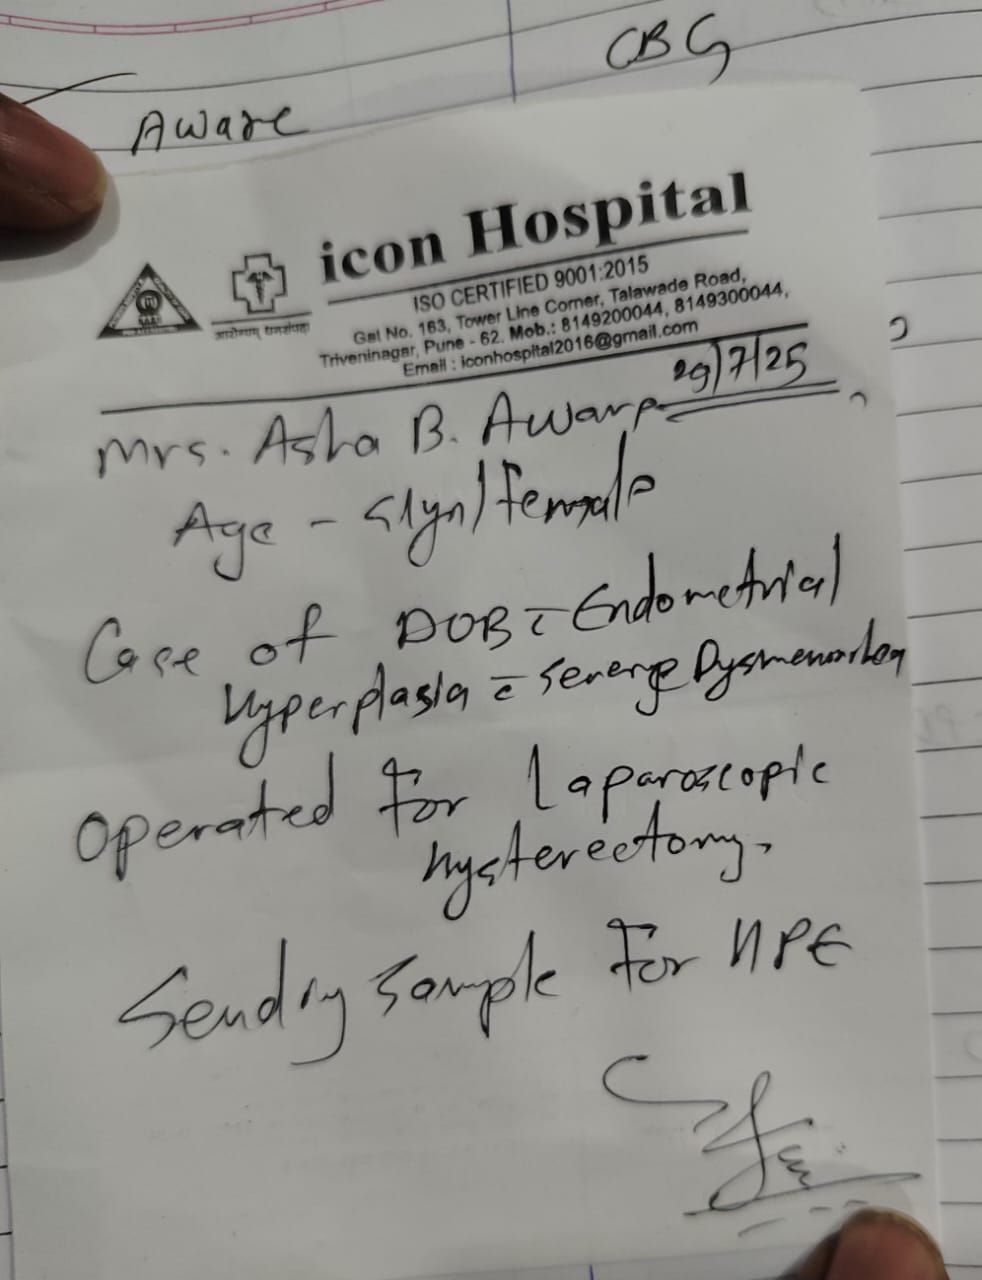 CBG
Aware
icon Hospital
ISO CERTIFIED 9001:2015
Gat No. 163, Tower Line Corner, Talawade Road,
Triveninagar, Pune - 62. Mob.: 8149200044, 8149300044,
Email : iconhospital2016@gmail.com
आरोग्यम् धनसंपदा
29/7/25
Mrs. Asha B. Aware
Age - 51yrs/female
Case of DUB c Endometrial
Hyperplasia c severe Dysmenorrhea
Operated for Laparoscopic
hysterectomy.
Sending sample for HPE